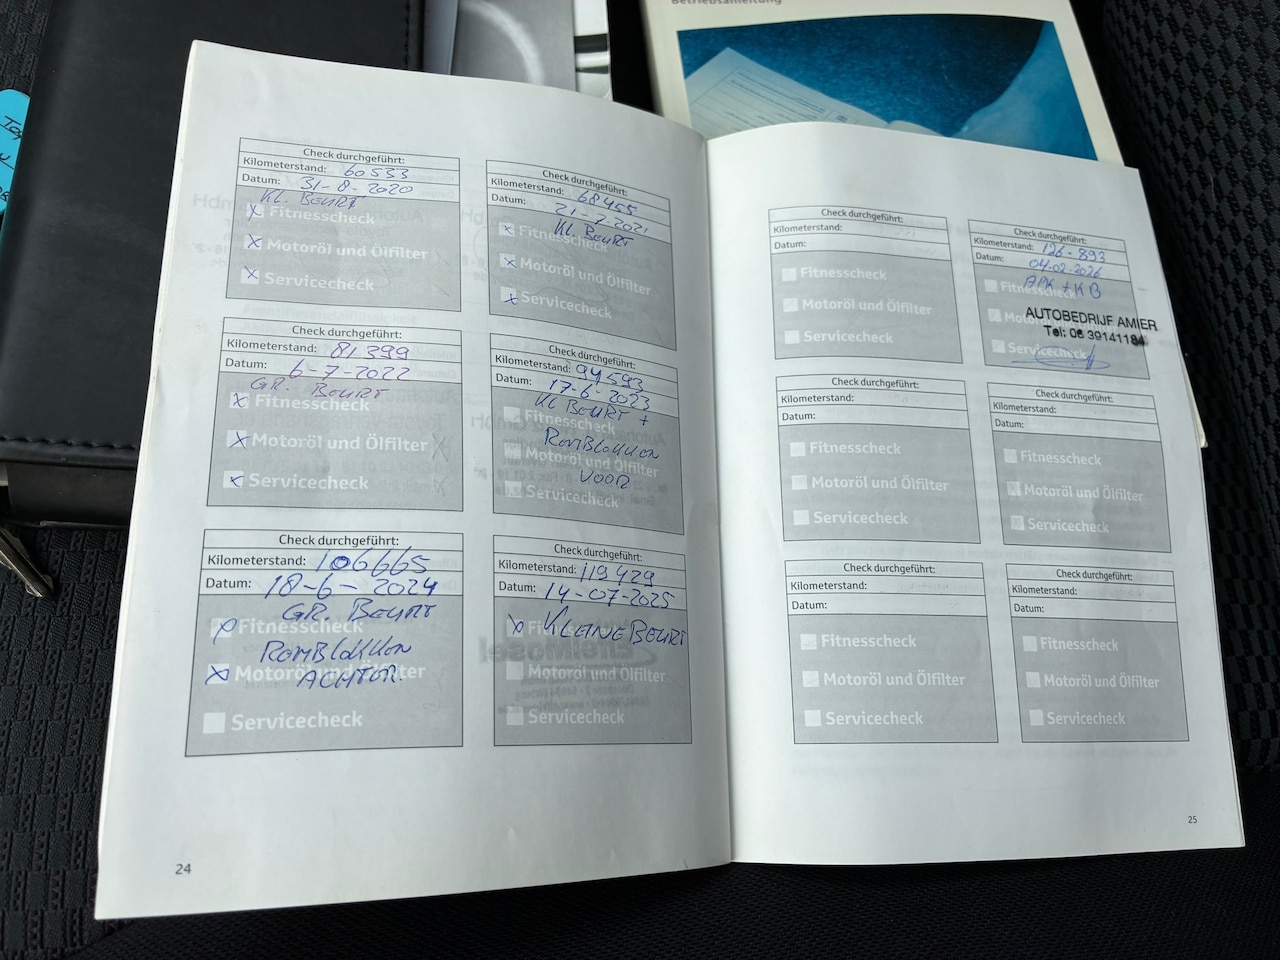 Betriebsanleitung
Check durchgeführt:
Kilometerstand: 60533
Datum: 31-8-2020
KL. BEURT
X Fitnesscheck
X Motoröl und Ölfilter
X Servicecheck
Check durchgeführt:
Kilometerstand: 68455
Datum: 21-7-2021
KL BEURT
X Fitnesscheck
X Motoröl und Ölfilter
X Servicecheck
Check durchgeführt:
Kilometerstand: 81399
Datum: 6-7-2022
GR. BEURT
X Fitnesscheck
X Motoröl und Ölfilter
X Servicecheck
Check durchgeführt:
Kilometerstand: 94593
Datum: 17-6-2023
KL BEURT +
Fitnesscheck
REMBLOKKEN
Motoröl und Ölfilter
VOOR
Servicecheck
Check durchgeführt:
Kilometerstand: 106665
Datum: 18-6-2024
GR. BEURT
X Fitnesscheck
REMBLOKKEN
X Motoröl und Ölfilter
ACHTER.
Servicecheck
Check durchgeführt:
Kilometerstand: 119429
Datum: 14-07-2025
X Fitnesscheck
KLEINE BEURT
Motoröl und Ölfilter
Servicecheck
24
Check durchgeführt:
Kilometerstand:
Datum:
Fitnesscheck
Motoröl und Ölfilter
Servicecheck
Check durchgeführt:
Kilometerstand: 126-893
Datum: 04-02-2026
APK + KB
Fitnesscheck
AUTOBEDRIJF AMIER
Tel: 06 39141184
Servicecheck
Check durchgeführt:
Kilometerstand:
Datum:
Fitnesscheck
Motoröl und Ölfilter
Servicecheck
Check durchgeführt:
Kilometerstand:
Datum:
Fitnesscheck
Motoröl und Ölfilter
Servicecheck
Check durchgeführt:
Kilometerstand:
Datum:
Fitnesscheck
Motoröl und Ölfilter
Servicecheck
Check durchgeführt:
Kilometerstand:
Datum:
Fitnesscheck
Motoröl und Ölfilter
Servicecheck
25